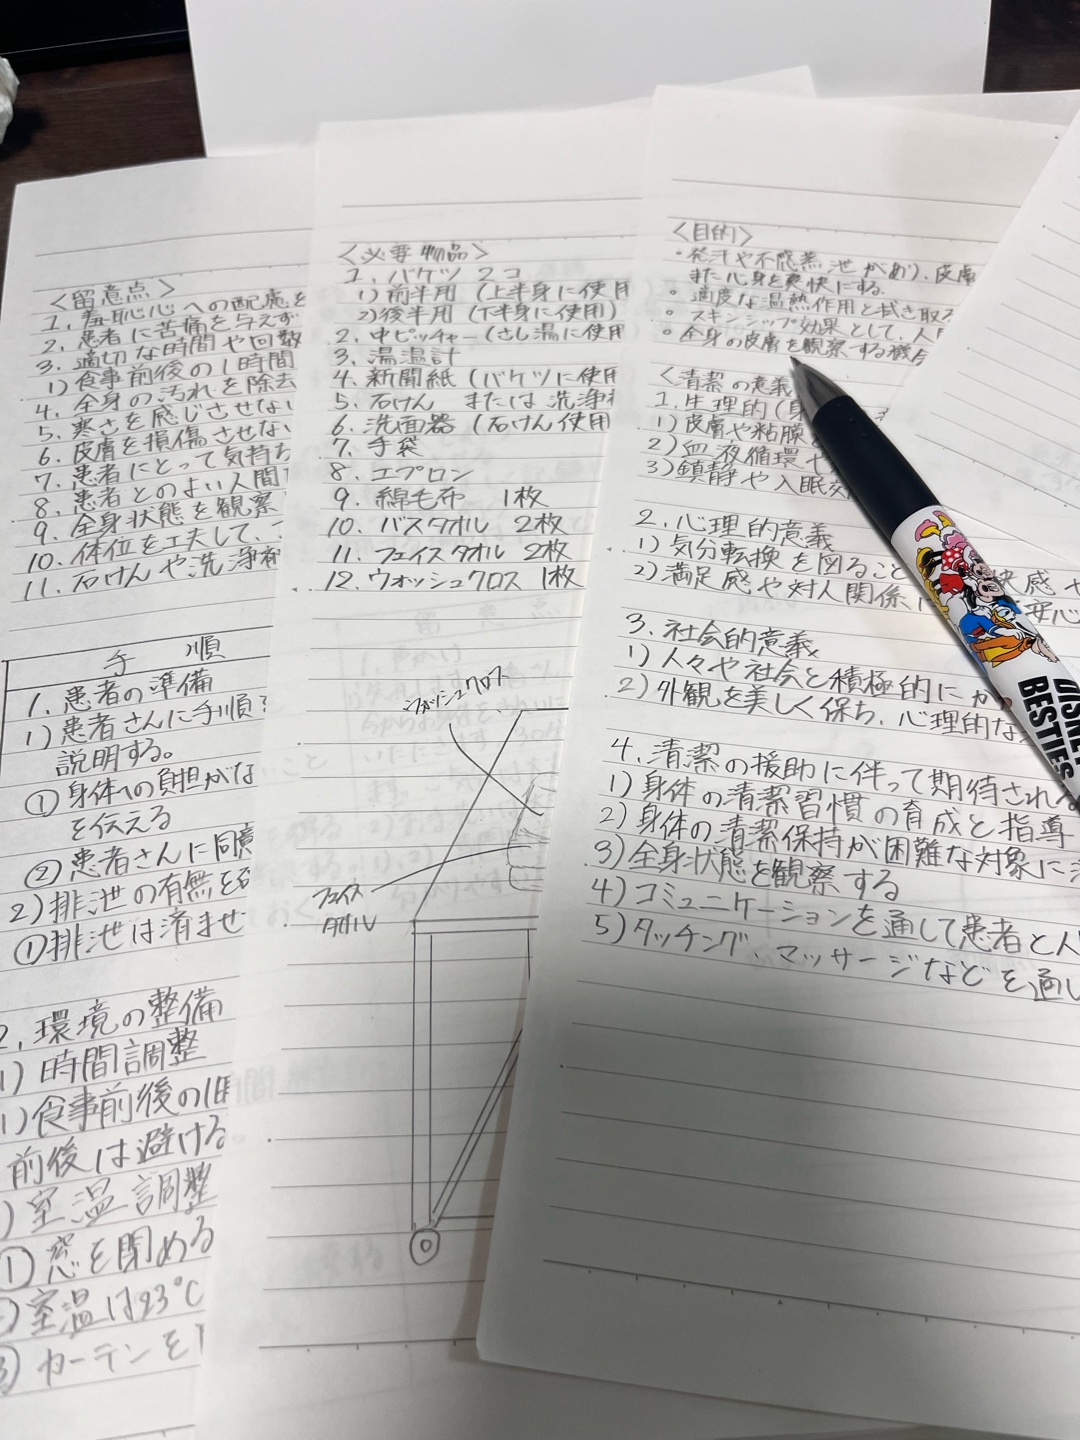 <留意点>
1. 羞恥心への配慮を
2. 患者に苦痛を与えず
3. 適切な時間や回数
1) 食事前後の1時間
4. 全身の汚れを除去
5. 寒さを感じさせない
6. 皮膚を損傷させない
7. 患者にとって気持ち
8. 患者とのよい人間
9. 全身状態を観察
10. 体位を工夫して、
11. 石けんや洗浄
手順
1. 患者の準備
1) 患者さんに手順を
説明する。
① 身体への負担がな
を伝える
② 患者さんに同意
2) 排泄の有無を
①排泄は済ませ
2. 環境の整備
1) 時間調整
1) 食事前後の1時
前後は避ける
) 室温調整
① 窓を閉める
室温は23℃
③ カーテンを
<必要物品>
1. バケツ 2コ
1) 前半用 (上半身に使用
2) 後半用 (下半身に使用)
2. 中ピッチャー (さし湯に使用
3. 湯温計
4. 新聞紙 (バケツに使用
5. 石けん または 洗浄
6. 洗面器 (石けん使用
7. 手袋
8. エプロン
9. 綿毛布 1枚
10. バスタオル 2枚
11. フェイスタオル 2枚
12. ウォッシュクロス 1枚
ウォッシュクロス
フェイス
タオル
<目的>
・発汗や不感蒸泄があり、皮膚
また心身を爽快にする。
○ 適度な温熱作用と拭き取
○ スキンシップ効果として、人
○ 全身の皮膚を観察する機会
<清潔の意義
1. 生理的(身
1) 皮膚や粘膜
2) 血液循環や
3) 鎮静や入眠
2. 心理的意義
1) 気分転換を図ること 快感や
2) 満足感や対人関係に 安心
3. 社会的意義
1) 人々や社会と積極的に
2) 外観を美しく保ち、心理的な
4. 清潔の援助に伴って期待される
1) 身体の清潔習慣の育成と指導
2) 身体の清潔保持が困難な対象に
3) 全身状態を観察する
4) コミュニケーションを通して患者と人
5) タッチング、マッサージなどを通し
BESTIES